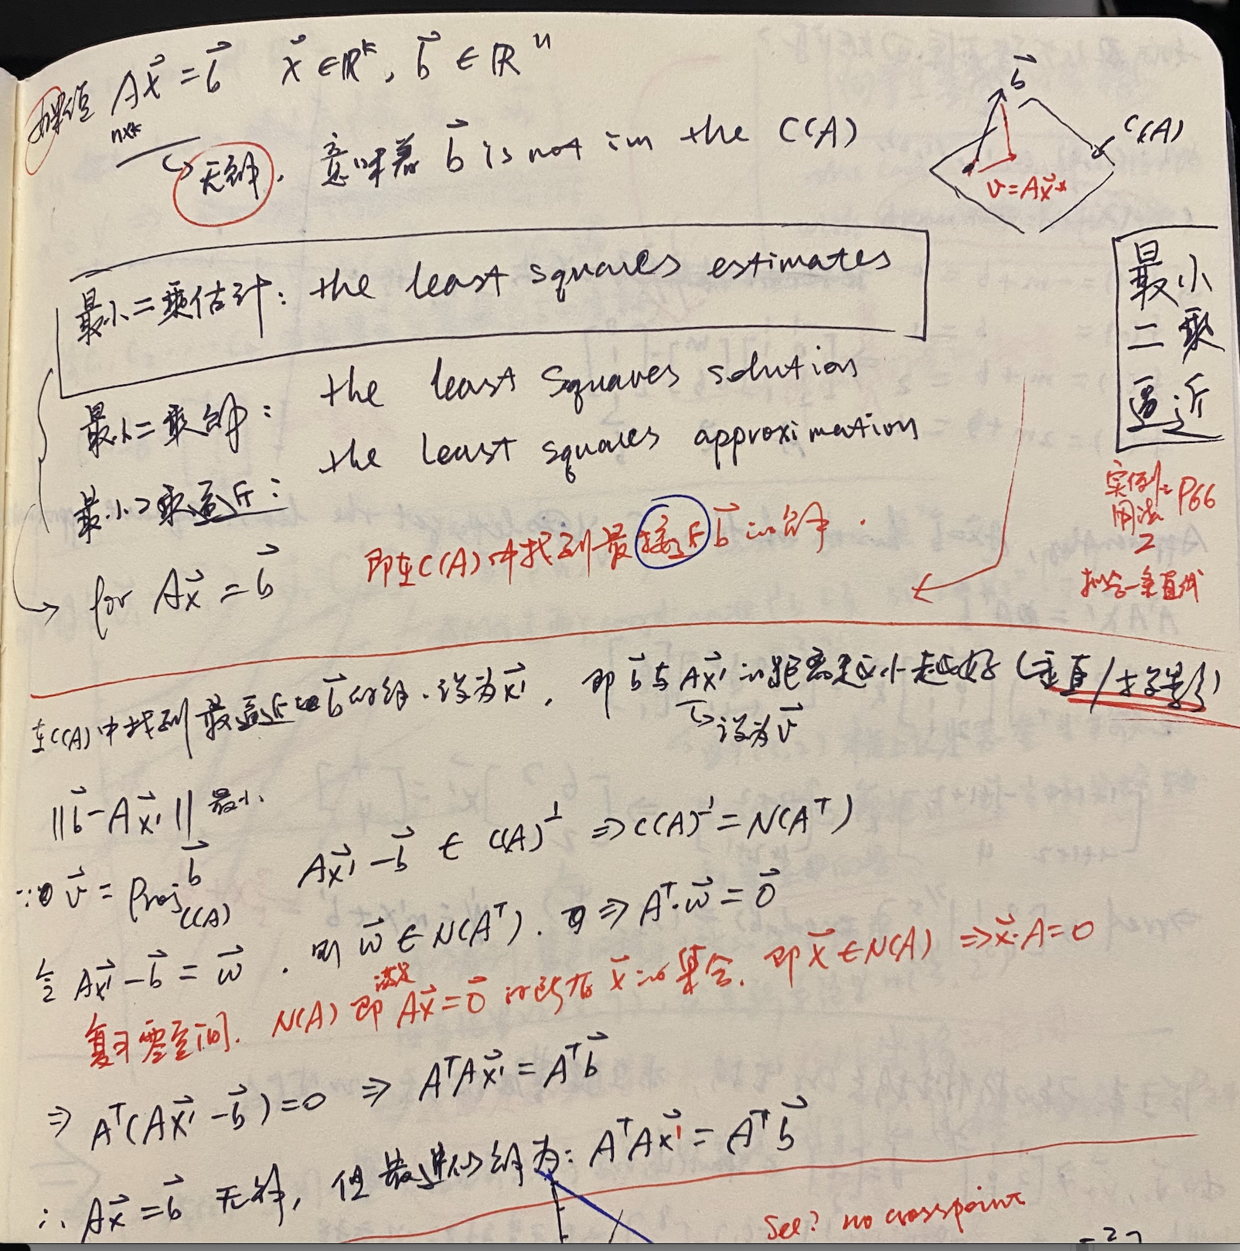 假设 Ax⃗ = b⃗ x⃗ ∈ ℝᵏ, b⃗ ∈ ℝⁿ
n×k
无解, 意味着 b⃗ is not in the C(A)
b⃗
C(A)
v = Ax⃗*
最小二乘估计: the least squares estimates
最小二乘解: the least squares solution
最小二乘逼近: the least squares approximation
for Ax⃗ = b⃗
即在C(A)中找到最接近b⃗的解.
最小
二乘
逼近
实例: P66
用法
2
拟合一条直线
在C(A)中找到最逼近b⃗的解. 设为x⃗′, 即b⃗与Ax⃗′的距离越小越好(垂直/投影)
设为v⃗
‖b⃗ - Ax⃗′‖ 最小
∵ v⃗ = Proj_C(A) b⃗ Ax⃗′ - b⃗ ∈ C(A)^⊥ ⇒ C(A)^⊥ = N(Aᵀ)
令 Ax⃗′ - b⃗ = w⃗. 则 w⃗ ∈ N(Aᵀ). ⇒ Aᵀ·w⃗ = 0⃗
复习零空间. N(A) 即满足 Ax⃗ = 0⃗ 的所有x⃗的集合. 即x⃗ ∈ N(A) ⇒ x⃗·A = 0
⇒ Aᵀ(Ax⃗′ - b⃗) = 0 ⇒ AᵀAx⃗′ = Aᵀb⃗
∴ Ax⃗ = b⃗ 无解, 但最逼近的解为: AᵀAx⃗′ = Aᵀb⃗
See? no crosspoint